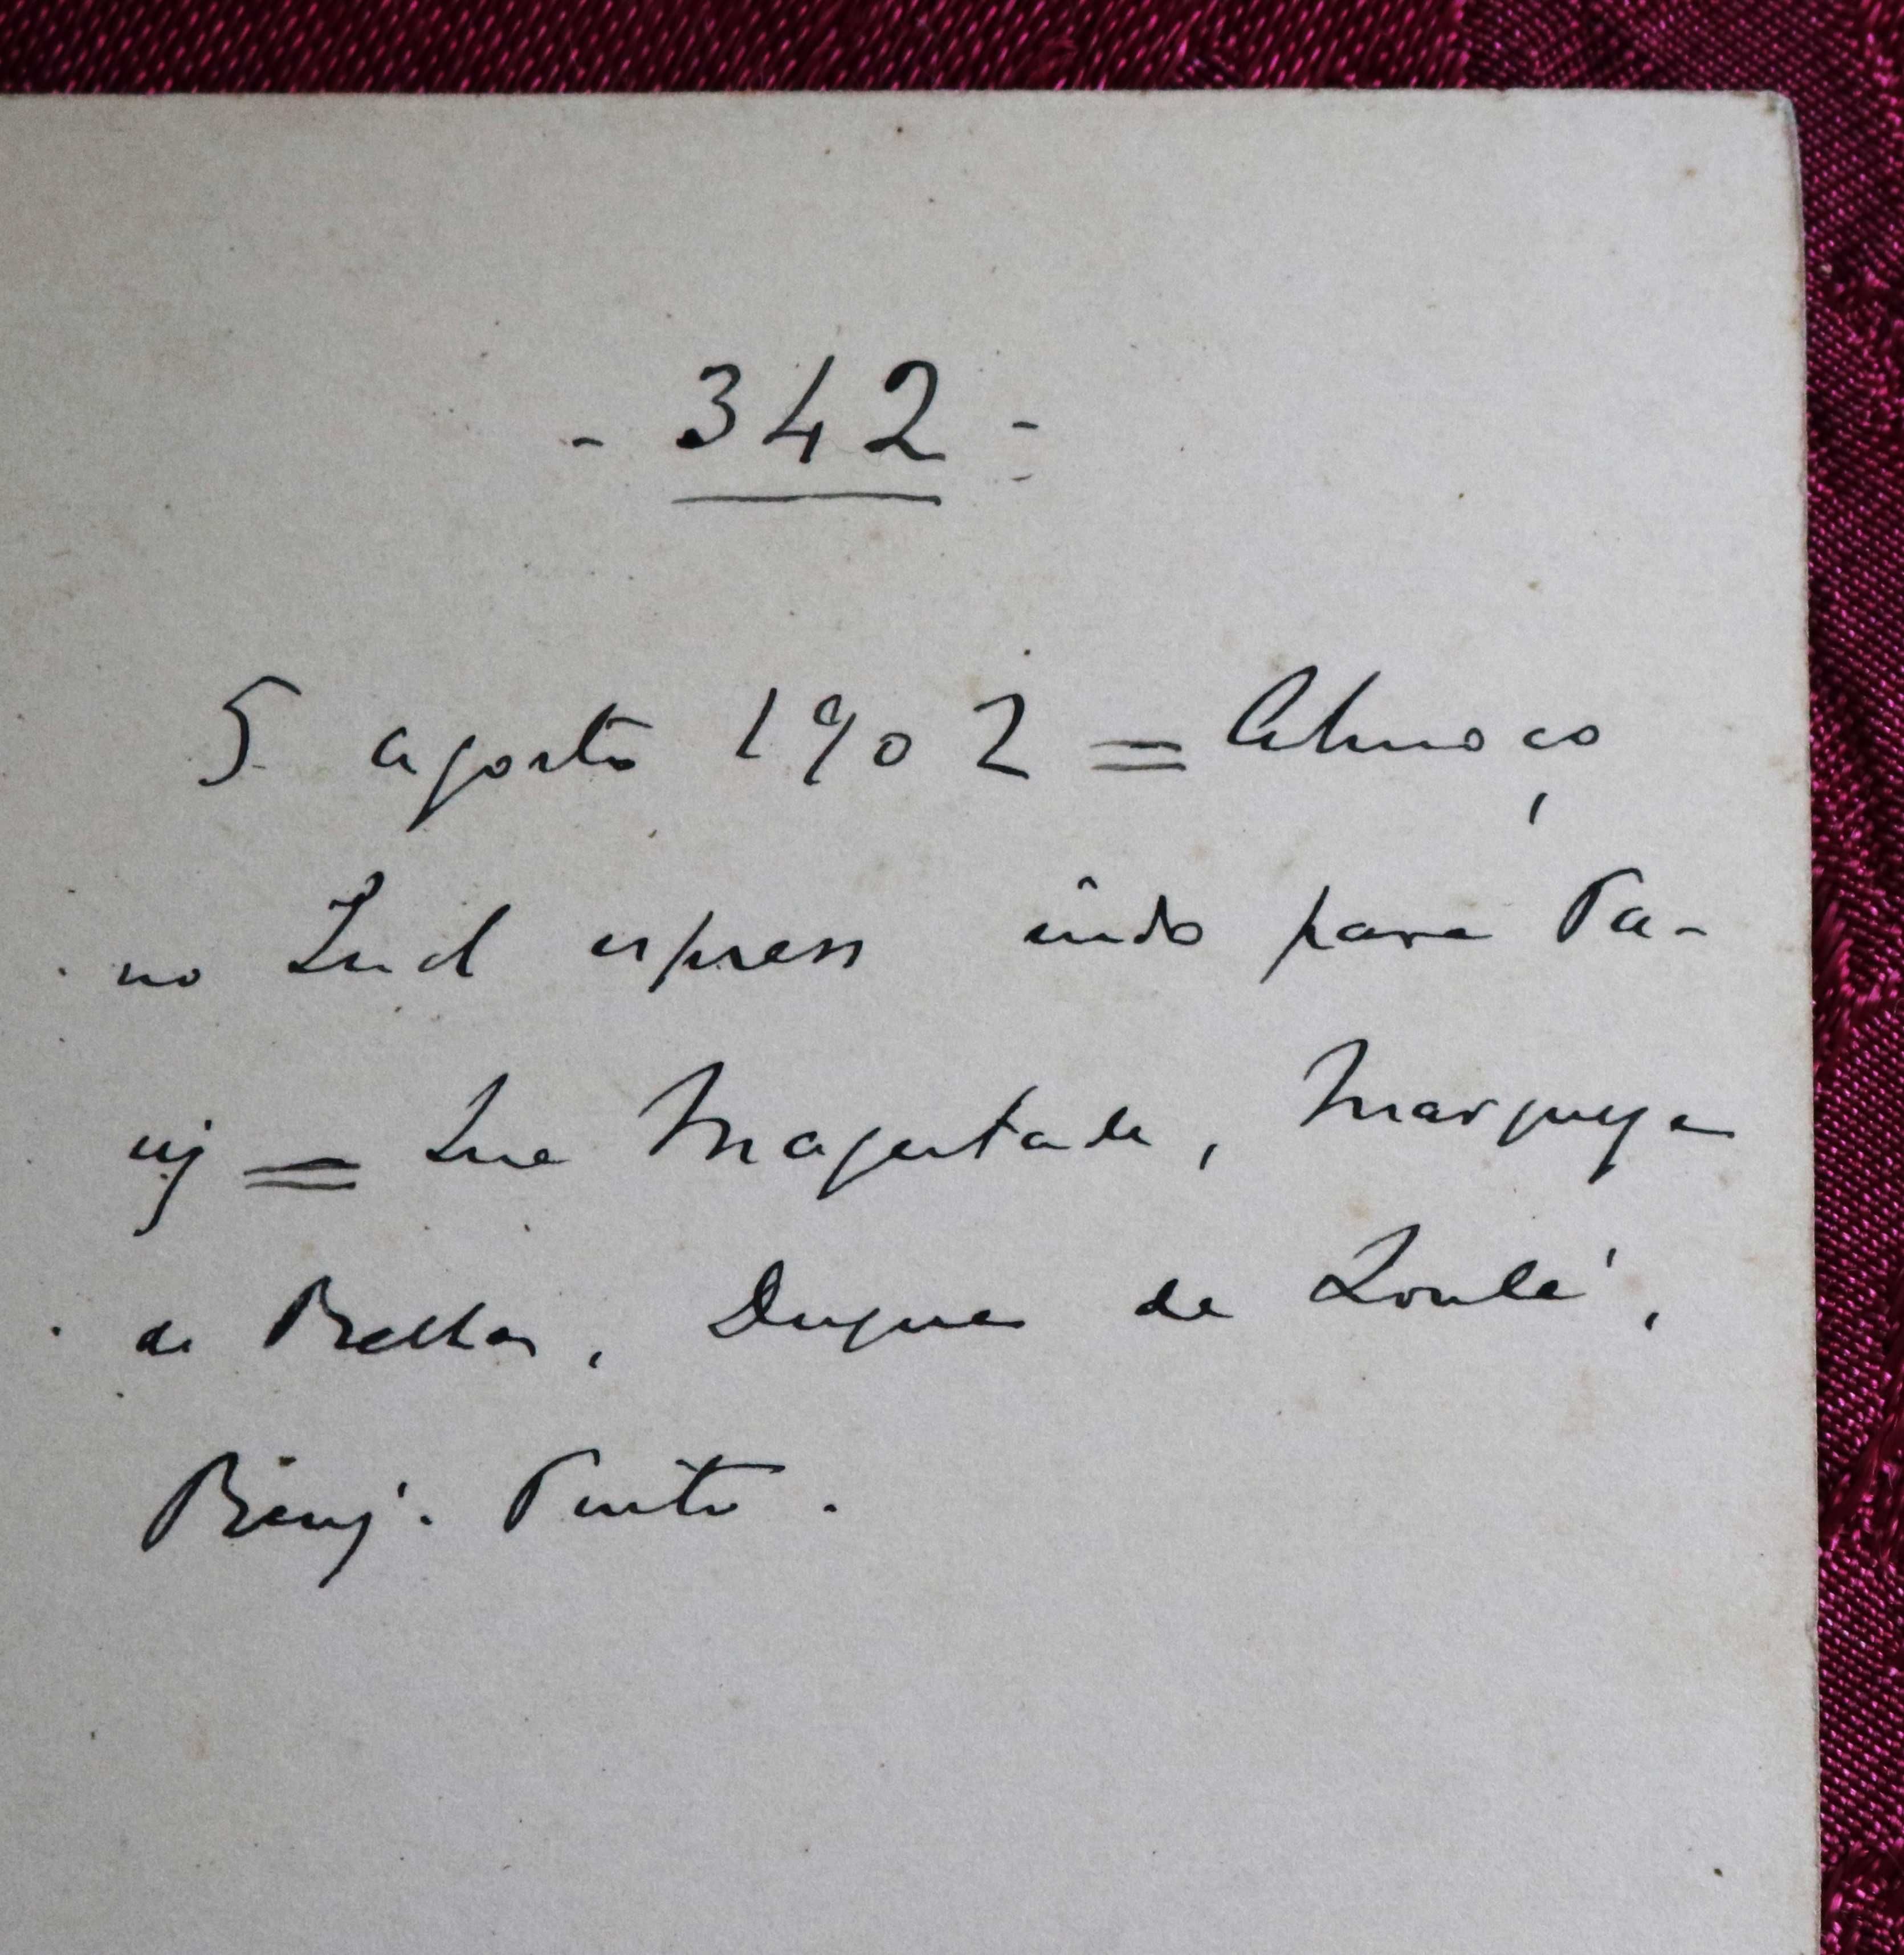 - 342 -
5 agosto 1902 = Almoço
no Sud express indo para Pa-
rij = Sua Magestade, Marqueza
de Bellas, Duque de Loulé,
Benj. Pinto.